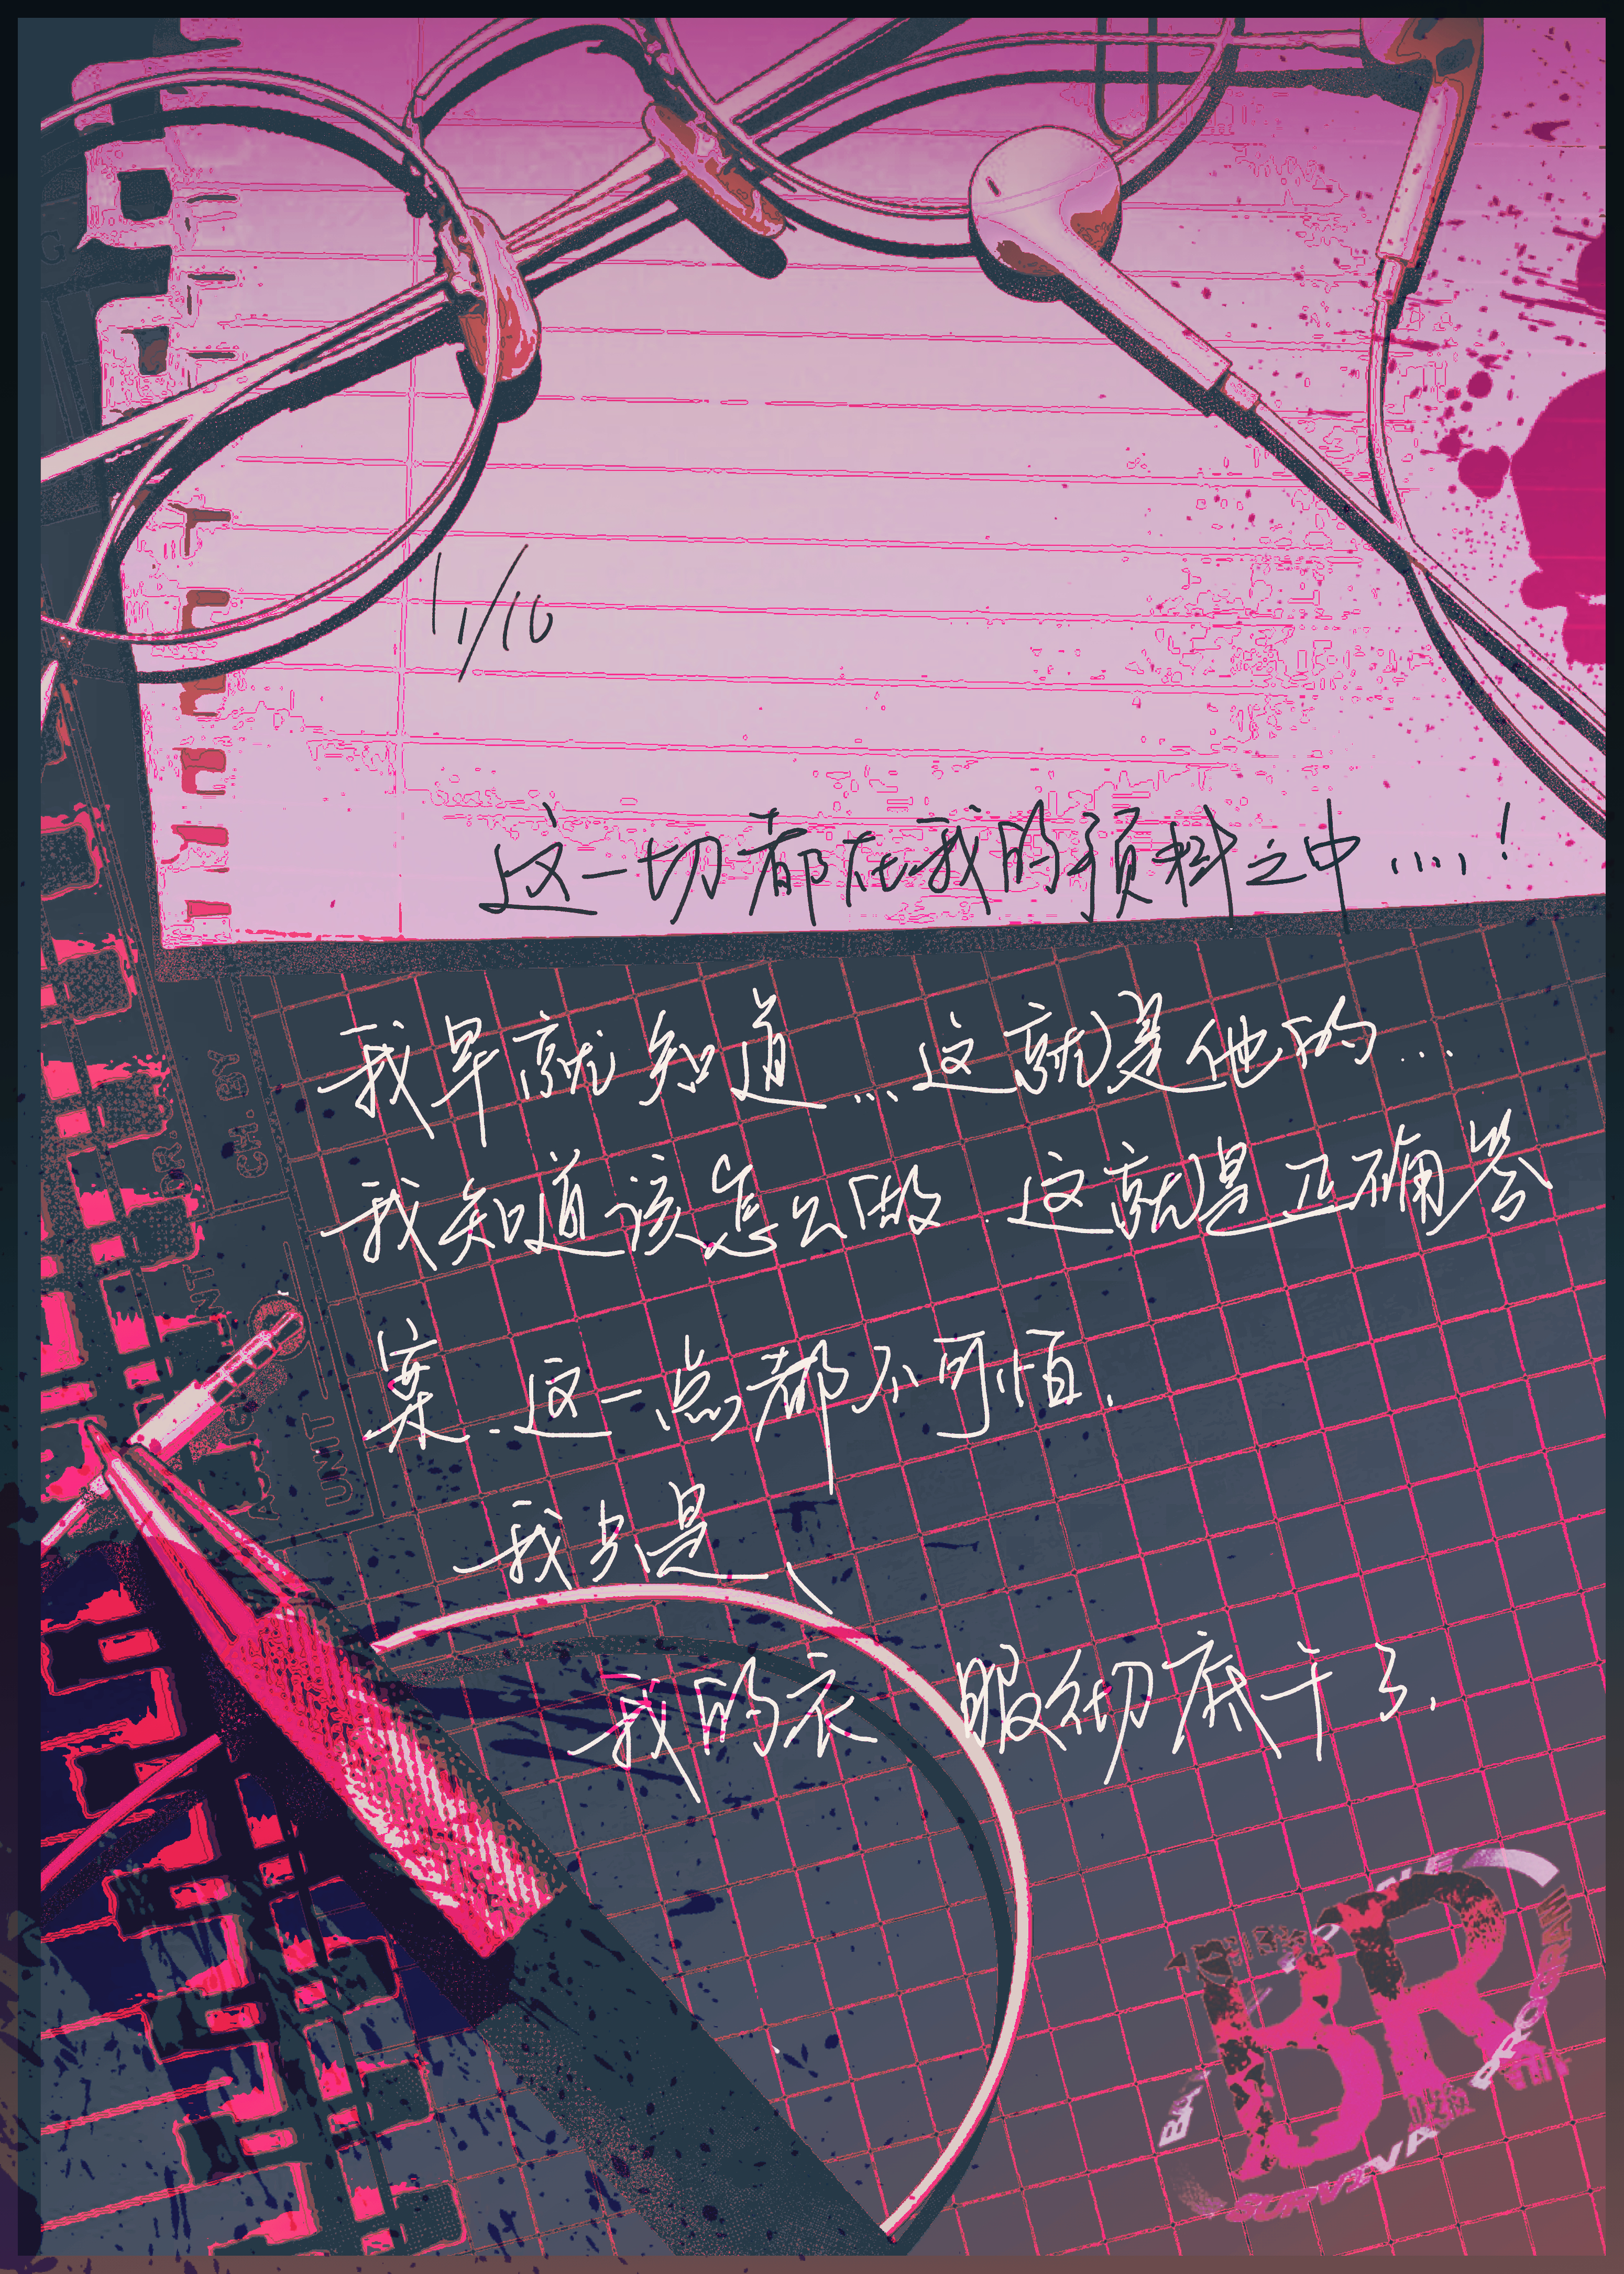 11/10
这一切都在我的预料之中....!
我早就知道...这就是他的...
我知道该怎么做 这就是正确答
案.这一点都不可怕.
我只是、
我的衣 服彻底干了.
CH. BY
DR.
UNIT
BR
PROGRAM
SURVIVA